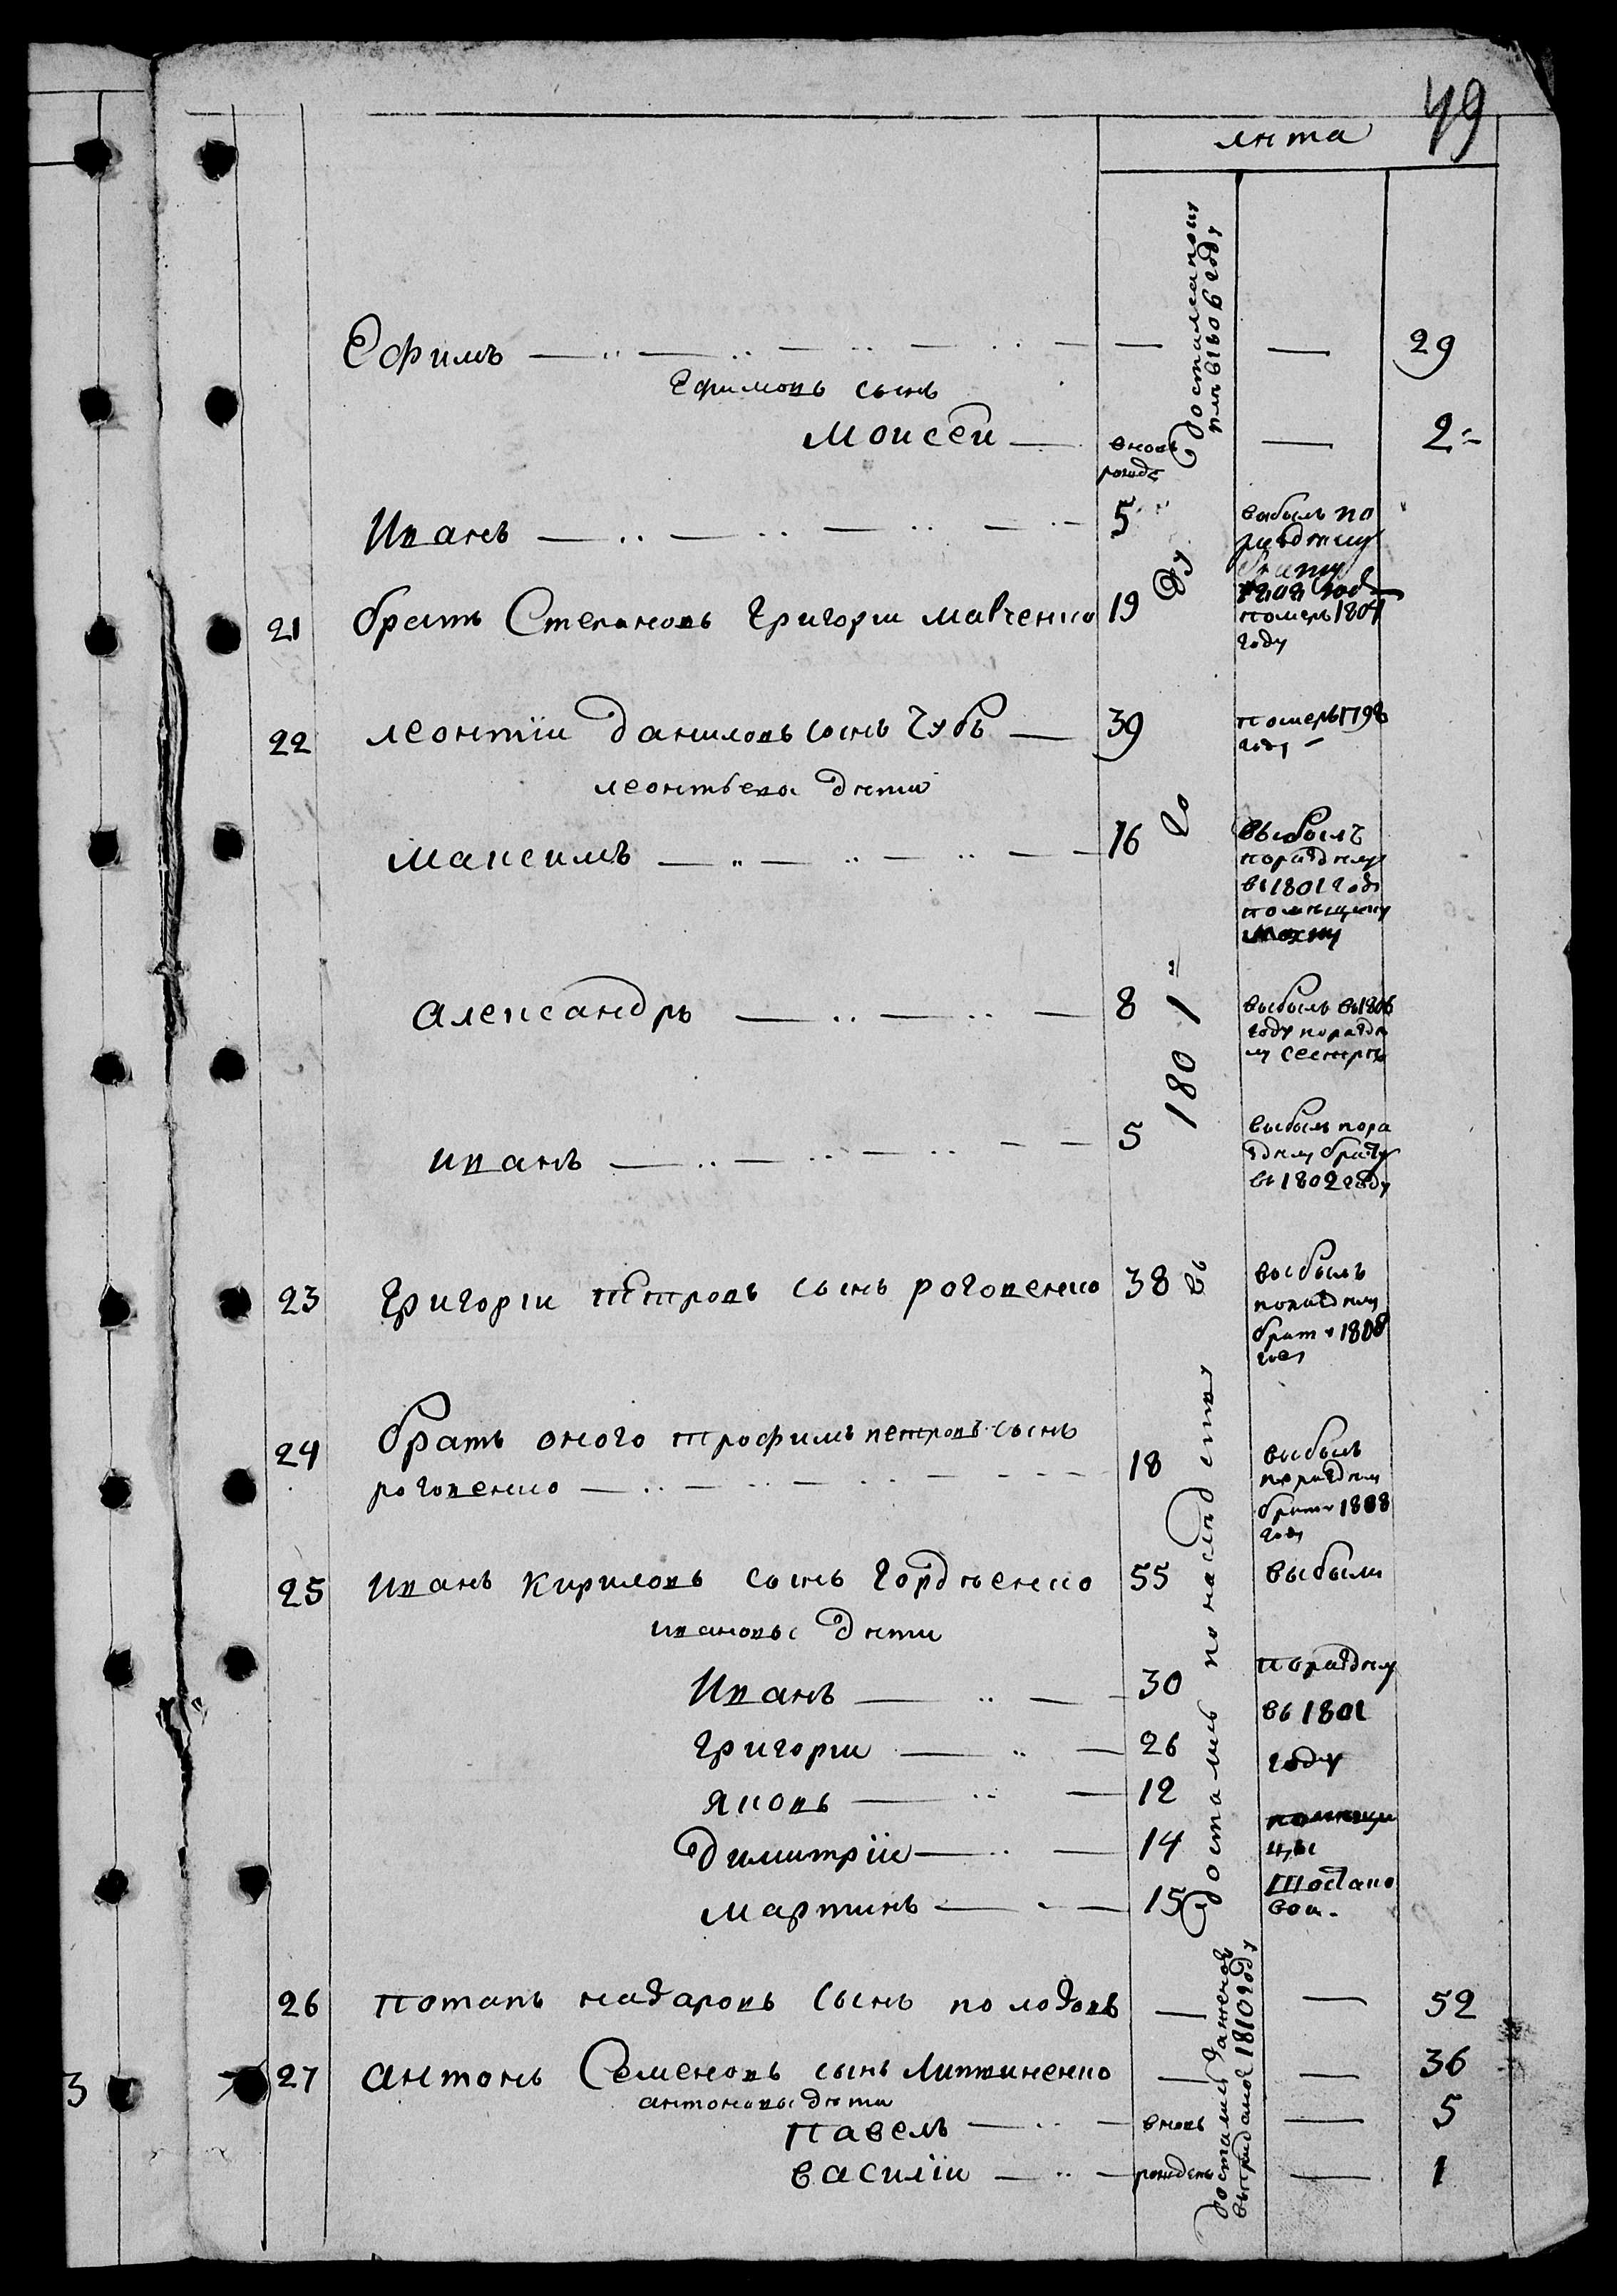 49
лѣта
Ефимъ — — — 29
Ефимовъ сынъ
Моисей — вновь рожде — 2
Иванъ — 5 выбылъ по
21 братъ Степановъ Григорій Мавченко 19 померъ 1804
году
22 Леонтій Даниловъ сынъ Чубъ — 39 померъ 1798
году
Леонтьева дѣти
Максимъ — 16 выбылъ
въ 1801 году
помѣщику
Александръ — 8 выбылъ въ 1806
году
Иванъ — 5 выбылъ пора
здѣлу брату
въ 1802 году
23 Григорій Петровъ сынъ Роговенко 38 выбылъ
пораздѣлу
брату 1808
году
24 братъ оного Трофимъ Петровъ сынъ
Роговенко — 18 выбылъ
пораздѣлу
брату 1808
году
25 Иванъ Кириловъ сынъ Гордѣенко 55 выбыли
Ивановы дѣти
Иванъ — 30 пораздѣлу
Григорій — 26 въ 1801
Яковъ — 12 году
Димитрій — 14
Мартинъ — 15
достались по наслѣдству въ 1801 году
26 Потапъ Назаровъ сынъ Колодовъ — — 52
27 Антонъ Семеновъ сынъ Литвиненко — — 36
Антоновы дѣти
Павелъ — вновь — 5
Василій — рожденъ — 1
1810 году
3